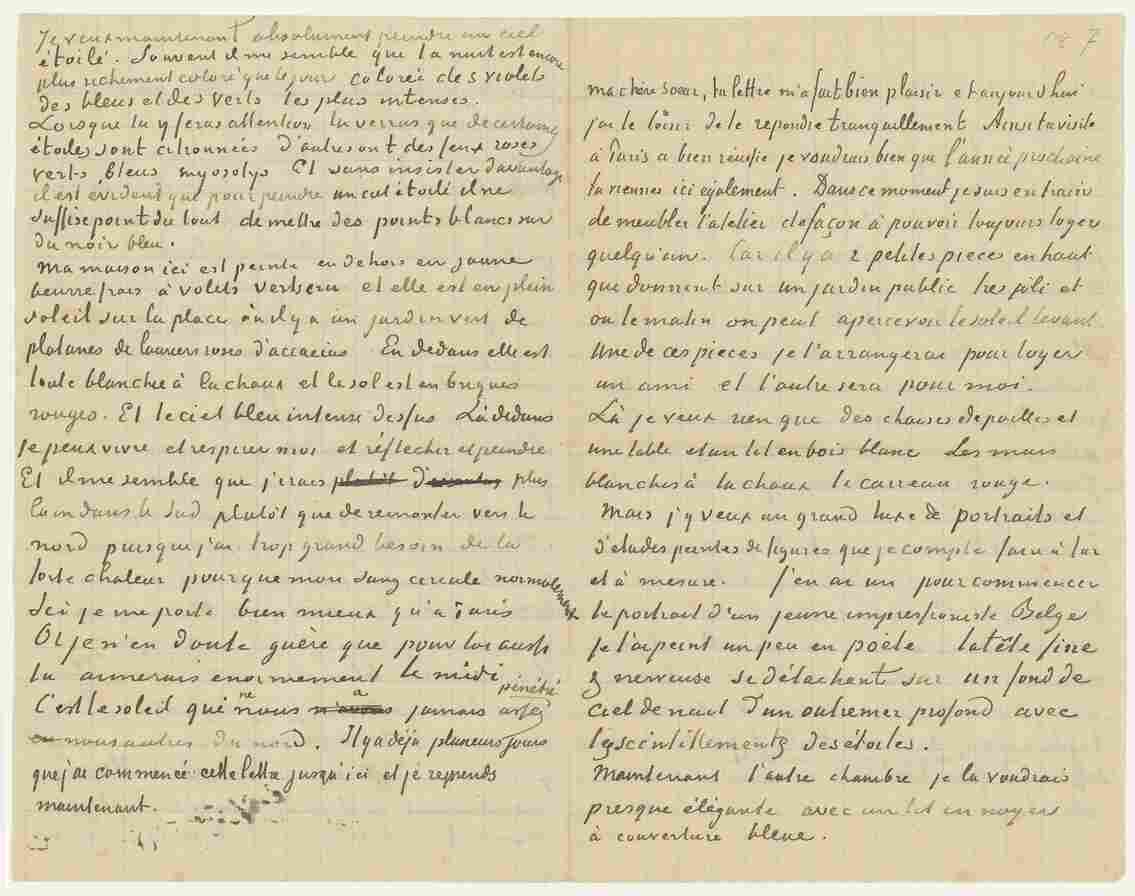 Je veux maintenant absolument peindre un ciel
étoilé. Souvent il me semble que la nuit est encore
plus richement coloré que le jour colorée des violets
des bleus et des verts les plus intenses.
Lorsque tu y feras attention tu verras que de certaines
étoiles sont citronnées d'autres ont des feux roses
verts, bleus, myosotys. Et sans insister davantage
il est évident que pour peindre un ciel étoilé il ne
suffise point du tout de mettre des points blancs sur
du noir bleu.
Ma maison ici est peinte en dehors en jaune
beurre frais à volets vert cru et elle est en plein
soleil sur la place où il y a un jardin vert de
platanes de lauriers roses d'accacias. En dedans elle est
toute blanchie à la chaux et le sol est en briques
rouges. Et le ciel bleu intense dessus. Là dedans
je peux vivre et respirer moi et réflechir et peindre
Et il me semble que j'irais plutôt plus
loin dans le Sud plutôt que de remonter vers le
nord puisque j'ai trop grand besoin de la
forte chaleur pour que mon sang circule normalement
Ici je me porte bien mieux qu'à Paris
Or je n'en doute guère que pour toi aussi
tu aimerais enormement le midi
C'est le soleil qui ne nous a jamais assez pénétré
nous autres du nord. Il y a déjà plusieurs jours
que j'ai commencé cette lettre jusqu'ici et je reprends
maintenant.
7
ma chère soeur, ta lettre m'a fait bien plaisir et aujourd'hui
j'ai le loisir de te repondre tranquillement Ainsi ta visite
à Paris a bien réussie je voudrais bien que l'année prochaine
tu viennes ici également. Dans ce moment je suis en train
de meubler l'atelier de façon à pouvoir toujours loger
quelqu'un. Car il y a 2 petites pieces en haut
qui donnent sur un jardin public tres joli et
où le matin on peut apercevoir le soleil levant
Une de ces pieces je l'arrangerai pour loger
un ami et l'autre sera pour moi.
Là je veux rien que des chaises de pailles et
une table et un lit en bois blanc Les murs
blanchis à la chaux le carreau rouge.
Mais j'y veux un grand luxe de portraits et
d'études peintes de figures que je compte faire à fur
et à mesure. J'en ai un pour commencer
le portrait d'un jeune impressioniste Belge
je l'ai peint un peu en poète la tête fine
& nerveuse se détachent sur un fond de
ciel de nuit d'un outremer profond avec
les scintillements des étoiles.
Maintenant l'autre chambre je la voudrais
presque élégante avec un lit en noyer
à couverture bleue.